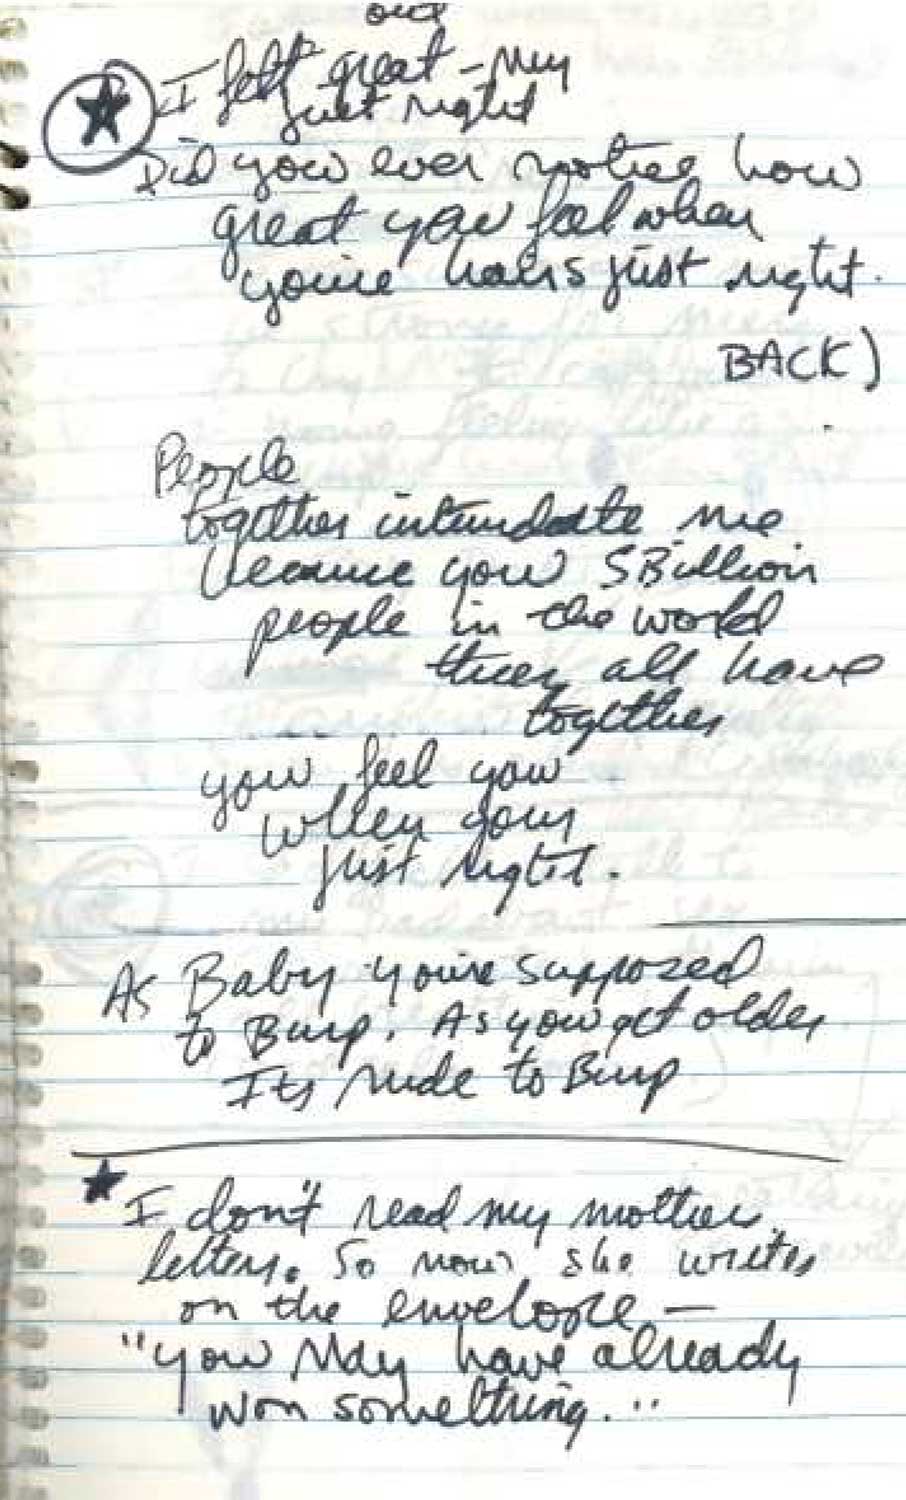 and
I felt great - My
just right
Did you ever notice how
great you feel when
you're hairs just right.
BACK)
People
together intimidate me
because you 5 Billion
people in the world
they all have
together
you feel you
when your
just right.
As Baby you're supposed
to Burp. As you get older
Its rude to Burp
I don't read my mother
letters. So now she writes
on the envelope —
"you May have already
won something."